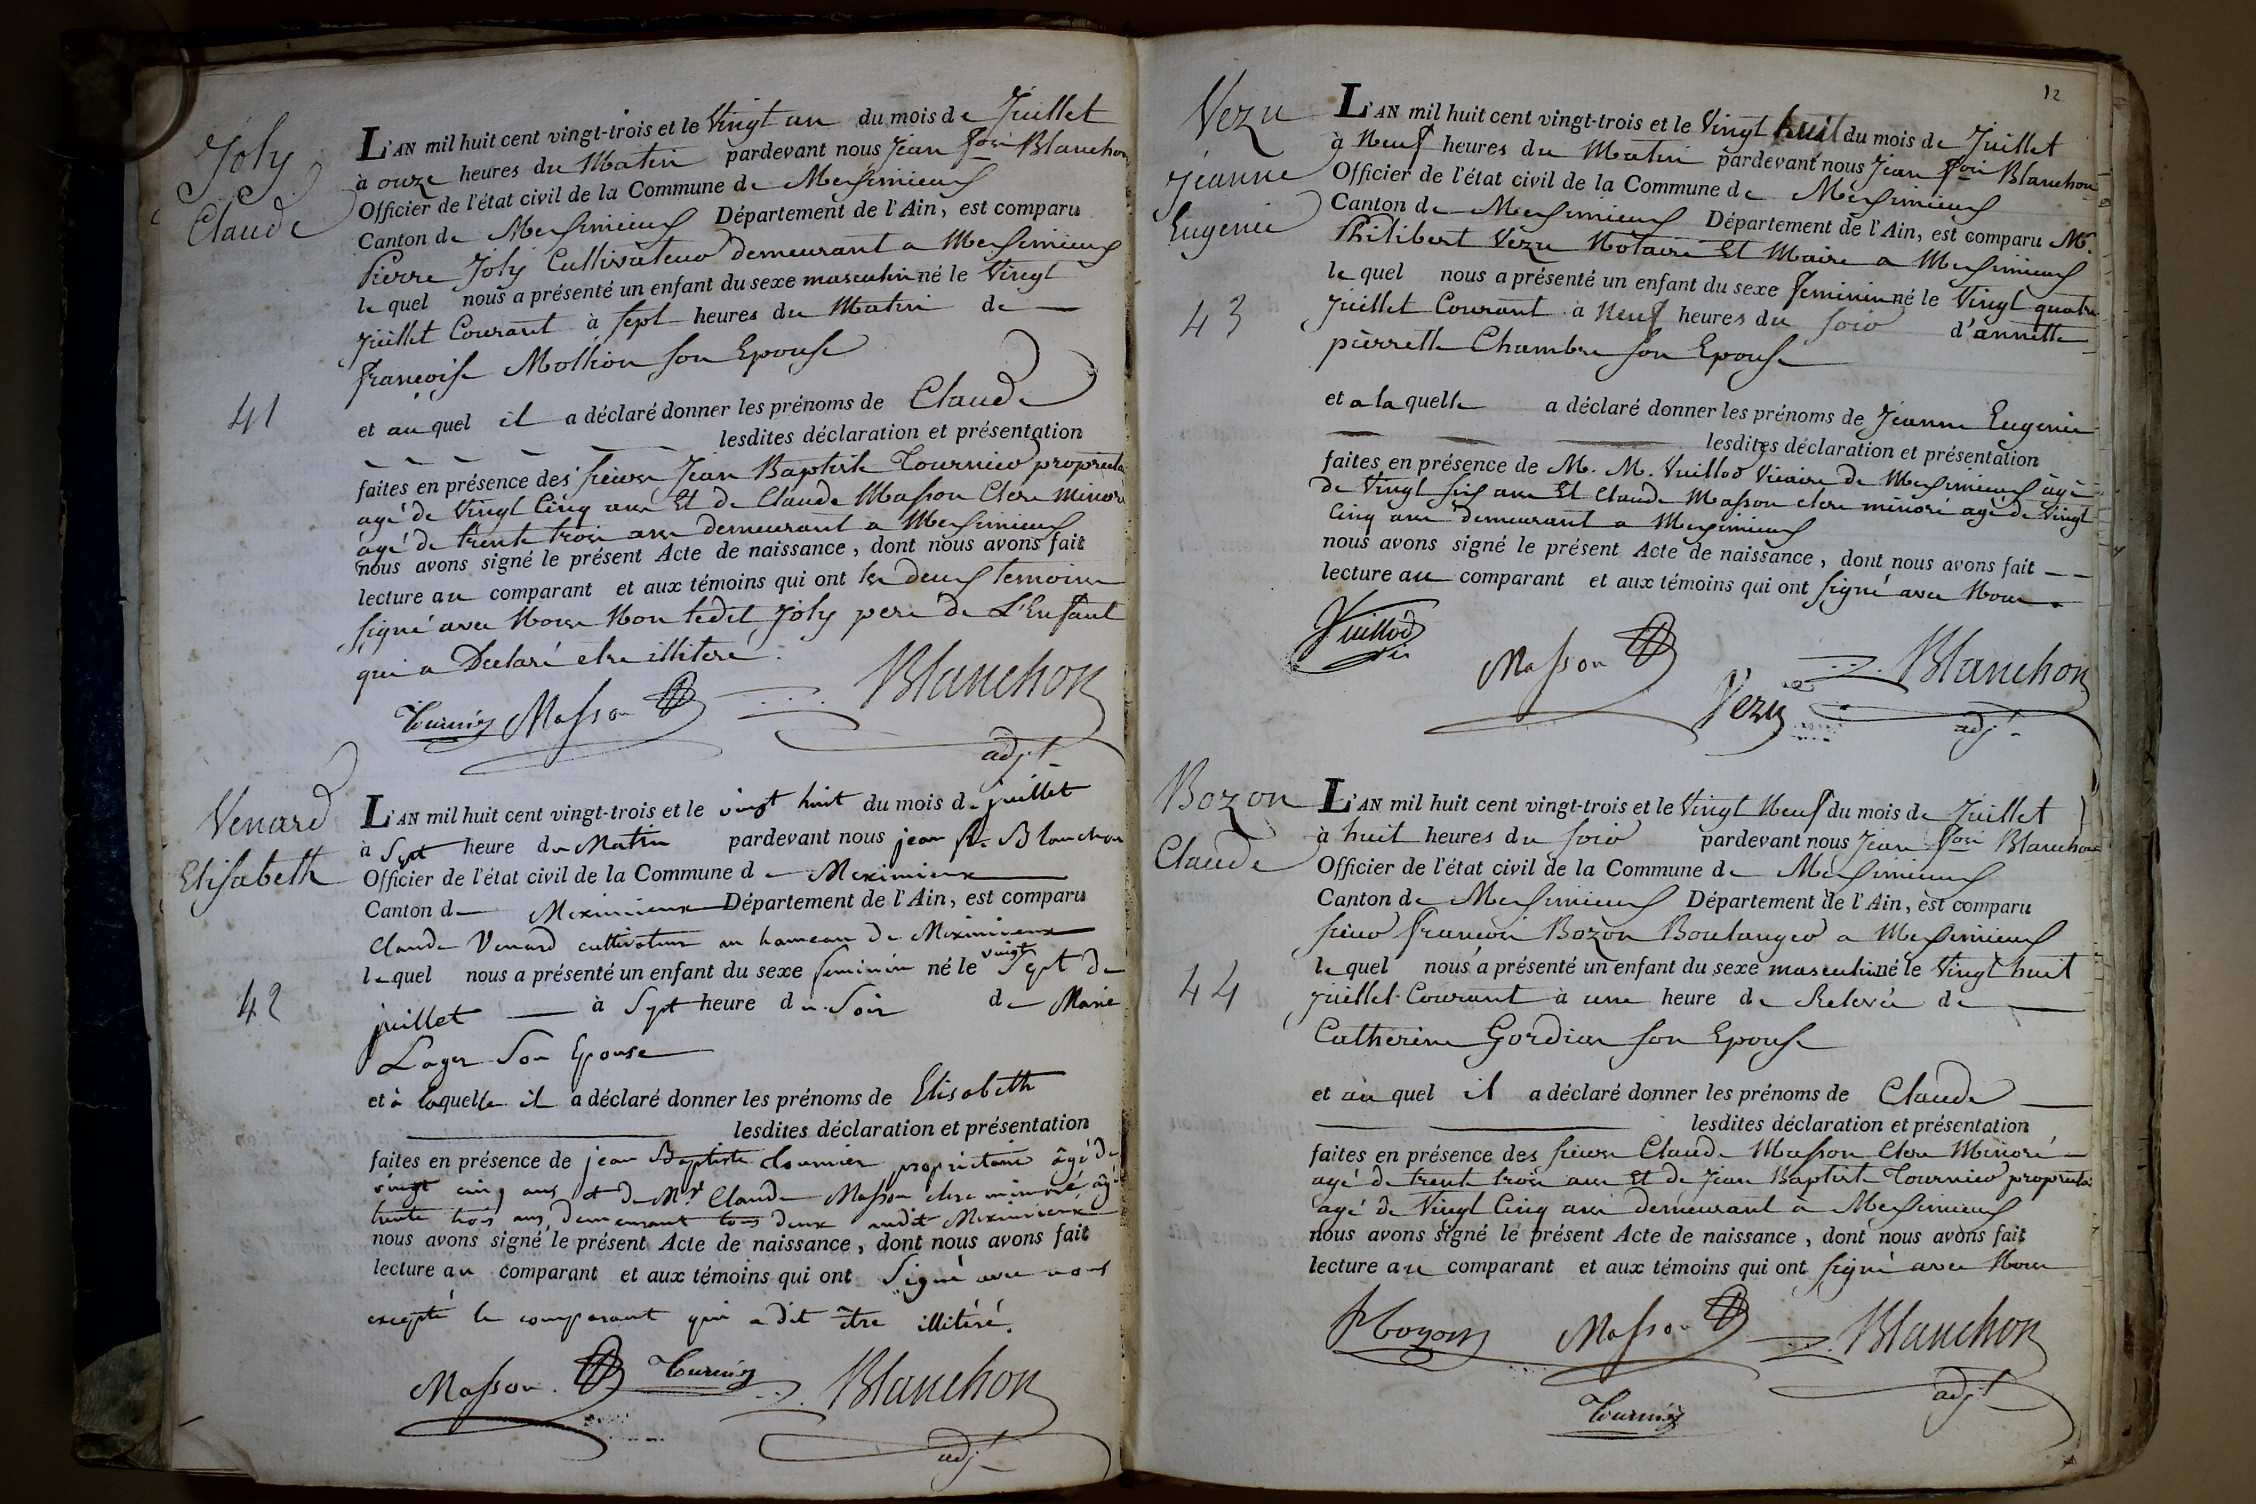 Joly
Claude
41
L'AN mil huit cent vingt-trois et le Vingt un du mois de Juillet
à onze heures du Matin pardevant nous Jean fois Blanchon
Officier de l'état civil de la Commune de Meximieux
Canton de Meximieux Département de l'Ain, est comparu
Pierre Joly Cultivateur demeurant a Meximieux
le quel nous a présenté un enfant du sexe masculin né le Vingt
Juillet Courant à sept heures du Matin de
françoise Mollion son Epouse
et au quel il a déclaré donner les prénoms de Claude
lesdites déclaration et présentation
faites en présence des sieurs Jean Baptiste Tournier propriétai
agé de Vingt Cinq ans Et de Claude Masson Clerc minoré
agé de trente trois ans demeurant a Meximieux
nous avons signé le présent Acte de naissance, dont nous avons fait
lecture au comparant et aux témoins qui ont les deux temoins
signé avec Nous Non ledit Joly pere de L'Enfant
qui a Declaré etre illiteré
Tournier Masson Blanchon
adjt
Venard
Elisabeth
42
L'AN mil huit cent vingt-trois et le vingt huit du mois de juillet
à Sept heure du Matin pardevant nous jean fs Blanchon
Officier de l'état civil de la Commune de Meximieux
Canton de Meximieux Département de l'Ain, est comparu
Claude Venard cultivateur au hameau de Meximieux
lequel nous a présenté un enfant du sexe feminin né le vingt Sept de
juillet à Sept heure du Soir de Marie
Lager Son Epouse
et à laquelle il a déclaré donner les prénoms de Elisabeth
lesdites déclaration et présentation
faites en présence de jean Baptiste tournier propriétaire âgé de
vingt cinq ans et de Mr Claude Masson clerc minoré âgé
trente trois ans, demeurant tous deux audit Meximieux
nous avons signé le présent Acte de naissance, dont nous avons fait
lecture au comparant et aux témoins qui ont Signé avec nous
excepté le comparant qui a dit être illitéré.
Masson Tournier Blanchon
adjt
12
Vezu
Jeanne
Eugenie
43
L'AN mil huit cent vingt-trois et le Vingt huit du mois de Juillet
à Neuf heures du Matin pardevant nous Jean fois Blanchon
Officier de l'état civil de la Commune de Meximieux
Canton de Meximieux Département de l'Ain, est comparu Mr
Philibert Vezu Notaire Et Maire a Meximieux
le quel nous a présenté un enfant du sexe feminin né le Vingt quatre
Juillet Courant à Neuf heures du soir d'annette
pierrette Chambre son Epouse
et a la quelle a déclaré donner les prénoms de Jeanne Eugenie
lesdites déclaration et présentation
faites en présence de M. M. Vuillod Vicaire de Meximieux âgé
de Vingt six ans Et Claude Masson clerc minoré agé de Vingt
Cinq ans demeurant a Meximieux
nous avons signé le présent Acte de naissance, dont nous avons fait
lecture au comparant et aux témoins qui ont signé avec Nous.
Vuillod
vic
Masson Vezu Blanchon
adjt
Bozon
Claude
44
L'AN mil huit cent vingt-trois et le Vingt Neuf du mois de Juillet
à huit heures du soir pardevant nous Jean fois Blanchon
Officier de l'état civil de la Commune de Meximieux
Canton de Meximieux Département de l'Ain, est comparu
sieur françois Bozon Boulanger a Meximieux
le quel nous a présenté un enfant du sexe masculin né le Vingt huit
Juillet Courant à une heure de Relevée de
Catherine Gordian son Epouse
et au quel il a déclaré donner les prénoms de Claude
lesdites déclaration et présentation
faites en présence des sieurs Claude Masson Clerc Minoré
agé de trente trois ans Et de Jean Baptiste Tournier propriétai
agé de Vingt Cinq ans demeurant à Meximieux
nous avons signé le présent Acte de naissance, dont nous avons fait
lecture au comparant et aux témoins qui ont signé avec Nous
fbozon Masson Blanchon
adjt
Tournier